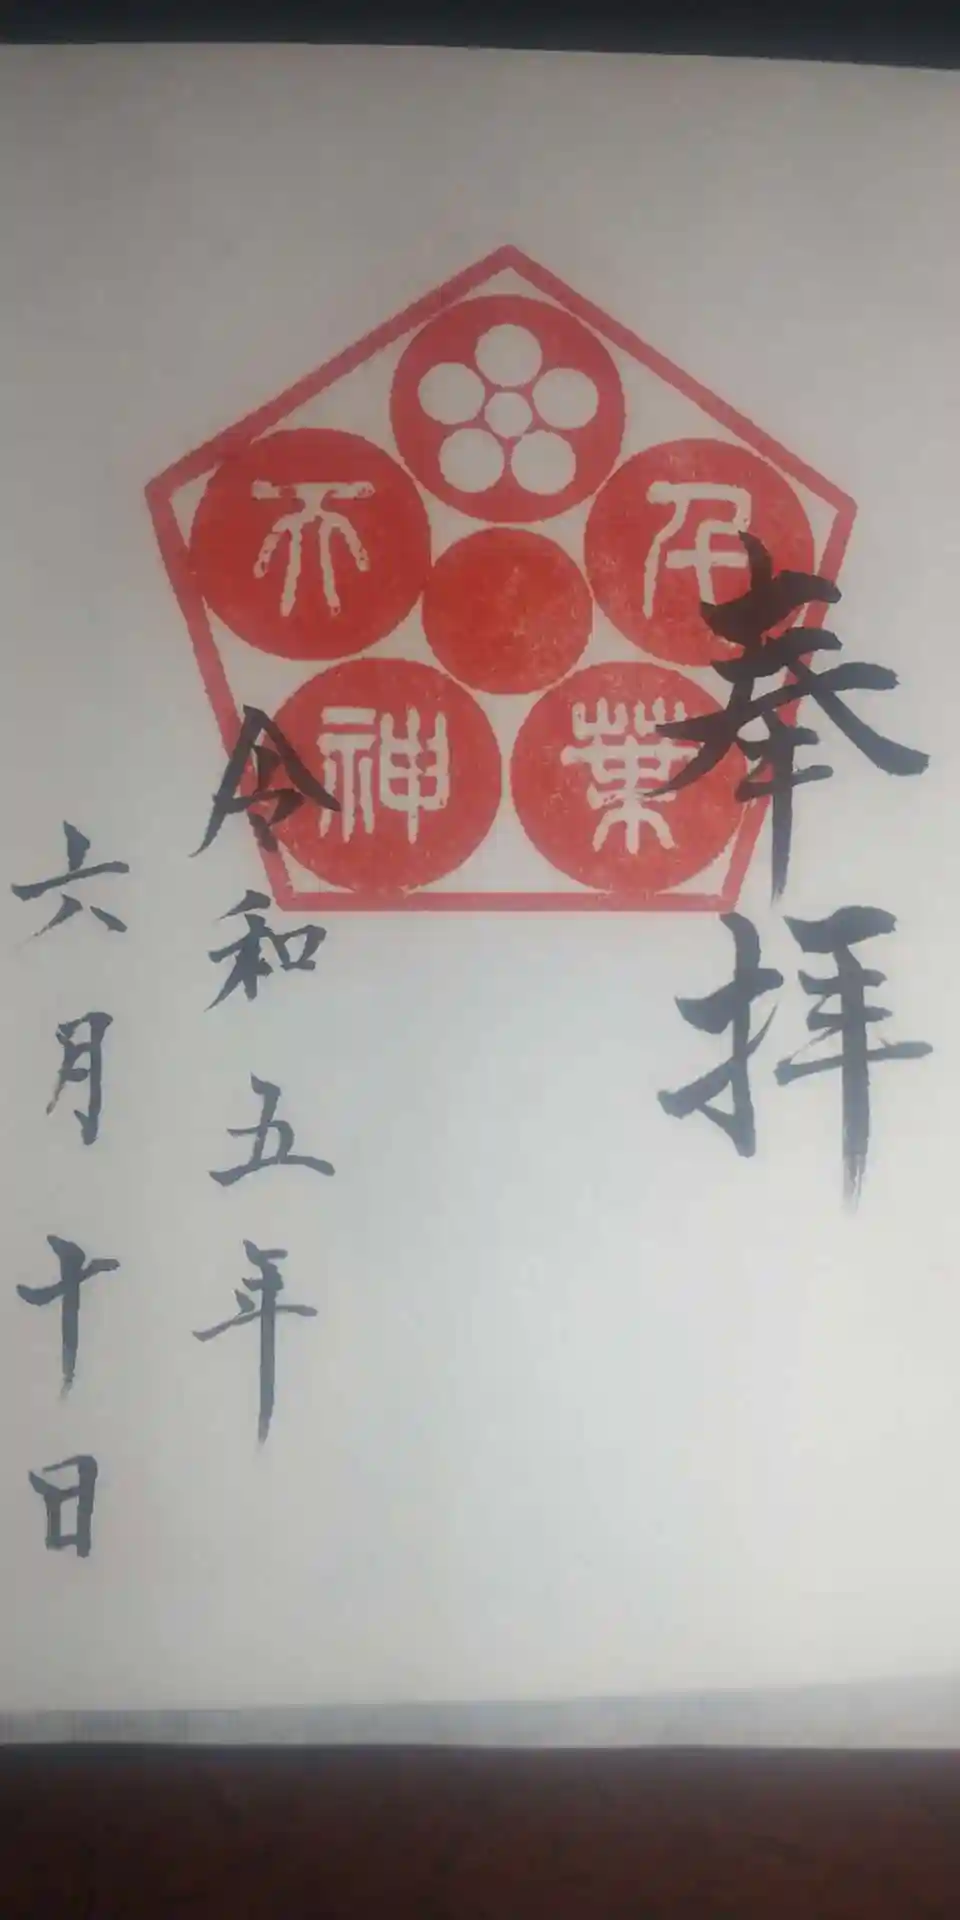 奉拝
千葉
天神
令和五年
六月十日